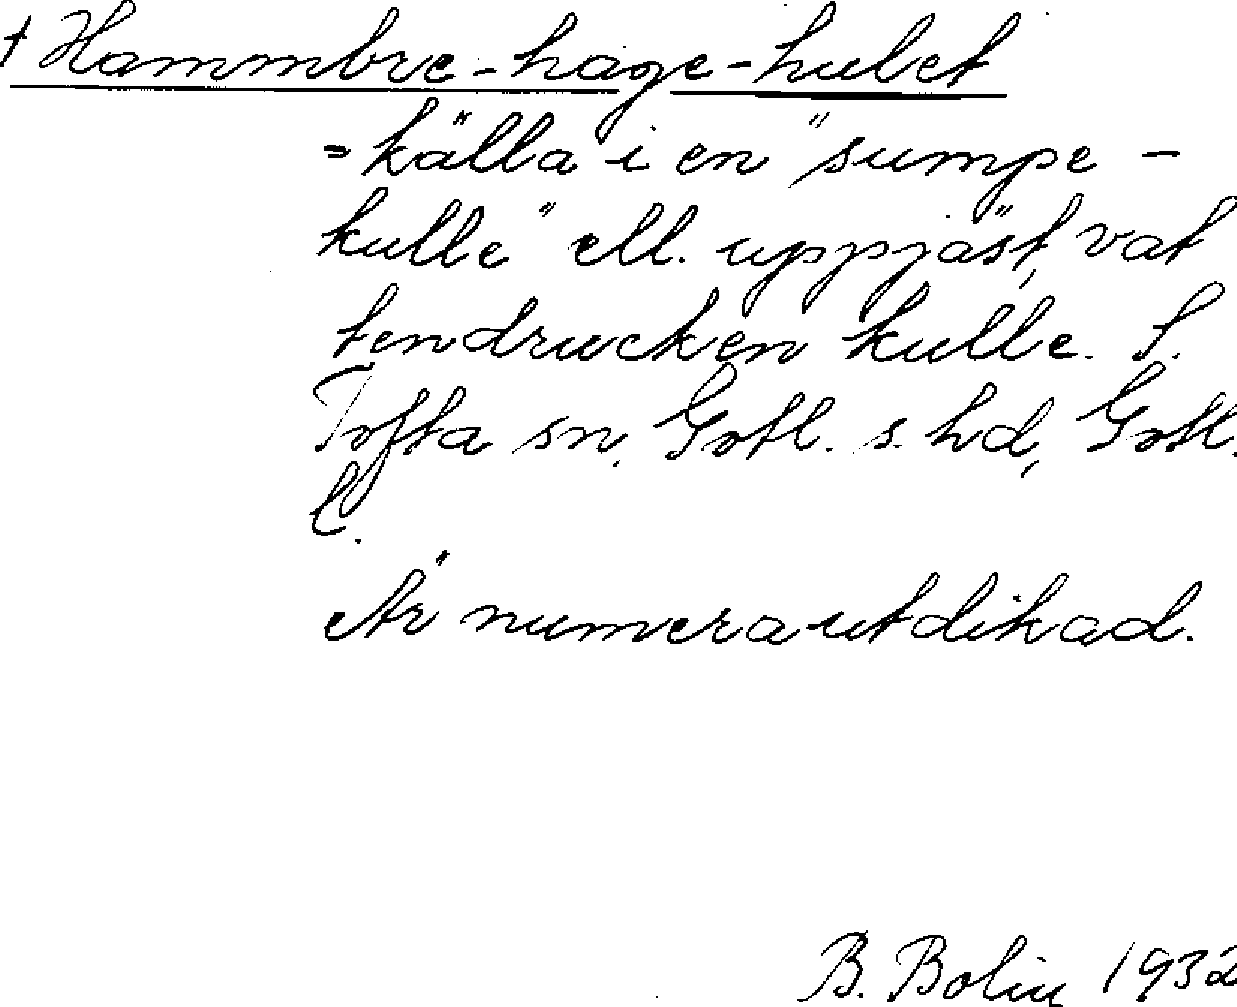 † Hammbre-hage-hulet
= källa i en "sumpe-
kulle" ell. uppjäst, vat
tendrucken kulle. S.
Tofta sn. Gotl. s. hd, Gotl.
l.
Är numera utdikad.
B. Bolin 1932